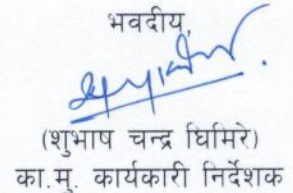 भवदीय,
(शुभाष चन्द्र घिमिरे)
का.मु. कार्यकारी निर्देशक